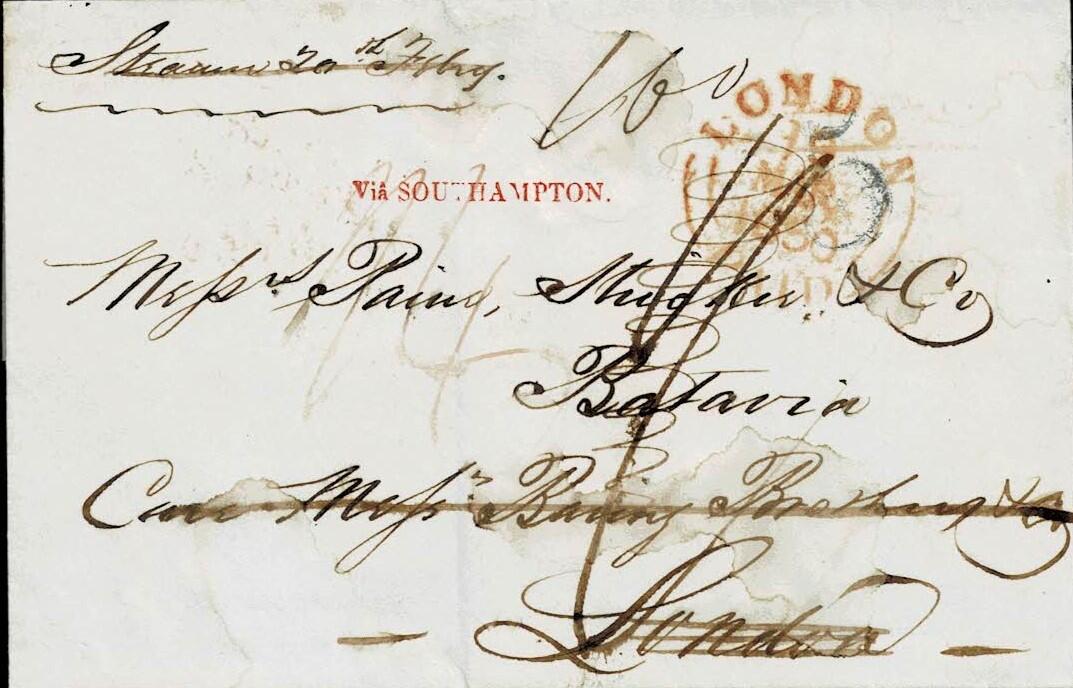 Steamer 20th Feby.
160
LONDON
Viâ SOUTHAMPTON.
Messrs Paine, Stricker & Co
Batavia
Care Messrs Baring Brothers & Co
London